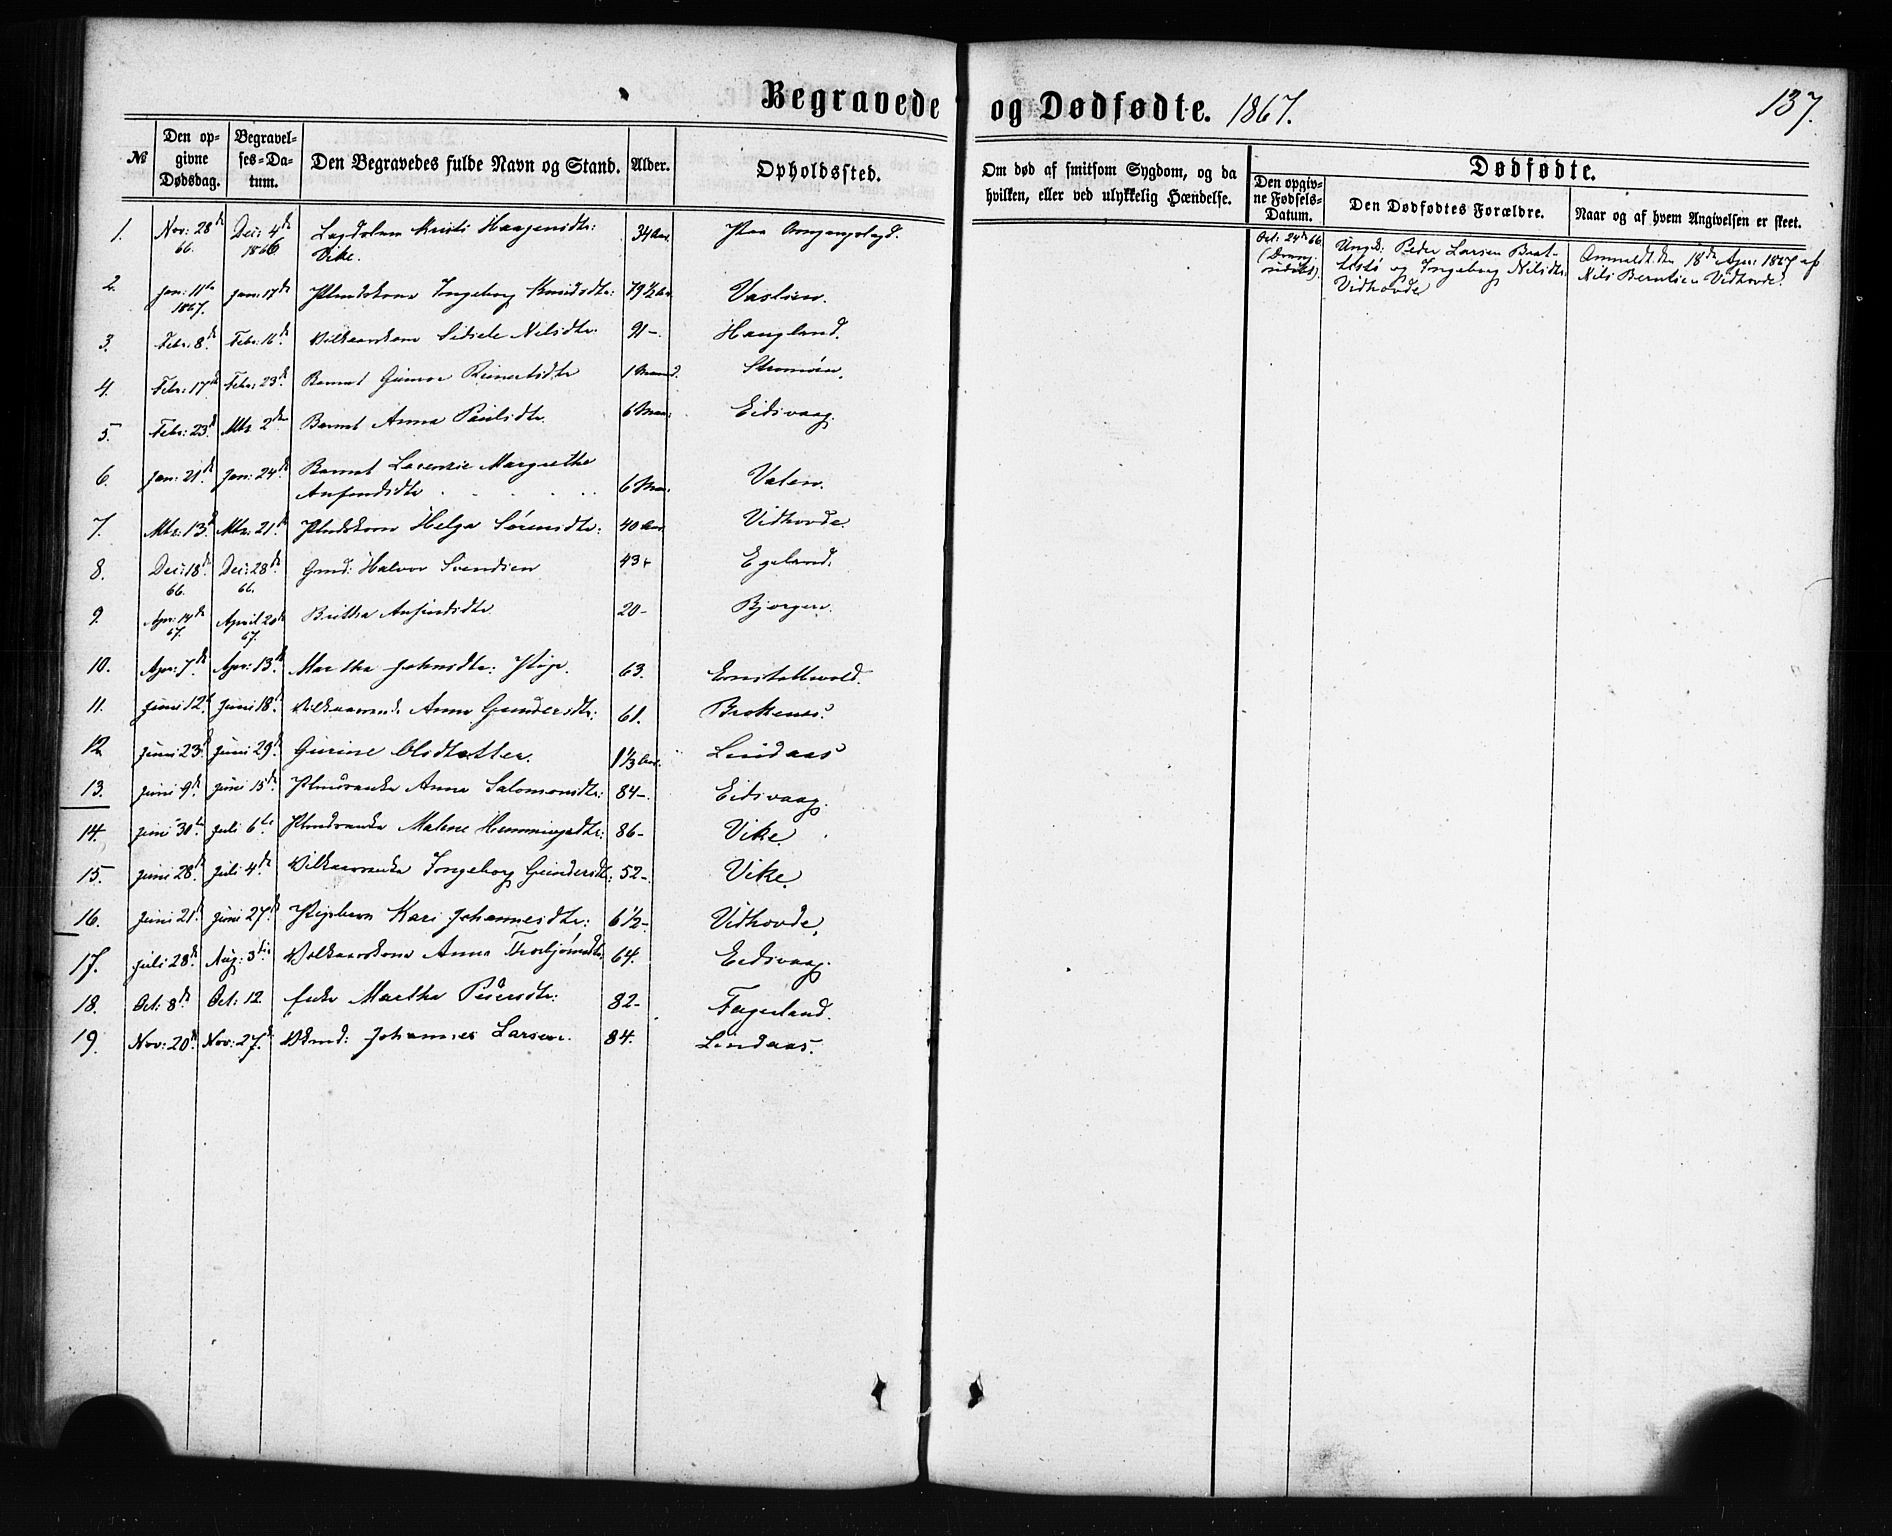 Begravede og Dødfødte. 1867. 137.
№ Den opgivne Dødsdag. Begravelses-Datum. Den Begravedes fulde Navn og Stand. Alder. Opholdssted. Om død af smitsom Sygdom, og da hvilken, eller ved ulykkelig Hændelse. Dødfødte.
Den opgivne Fødsels-Datum. Den Dødfødtes Forældre. Naar og af hvem Angivelsen er skeet.
1. Nov: 28de 66. Dec: 4de 1866 Kristi Haagensdtr: Vike. 34 Aar. Paa Omgangslægd.
Oct: 24de 66. Ungk. Peder Larsen
og Ingeborg Nilsdtr Vidhovde
Anmeldt den 18de Apr: 1867 af Nils Berntsen Vidhovde.
2. Jan: 11te 1867. Jan: 17de Ingeborg Knudsdtr: 79 1/2 Aar Vaslien.
3. Febr: 8de Febr: 16de Vilkaarskone Sidsele Nilsdtr: 91 - Haugland.
4. Febr: 17de Febr: 23de Barnet Gunvor Reinertsdtr 1 Maaned. Stromøen.
5. Febr: 23de Mts 2den Barnet Anna Paulsdtr. 6 Maan: Eidsvaag.
6. Jan: 21de Jan: 24de Barnet Lorenzie Margrethe Anfindsdtr 6 Maan. Valen.
7. Mts: 13de Mts: 21de Helga Sørensdtr: 40 Aar Vidhovde.
8. Dec: 18de 66. Dec: 28de 66. Gmd: Halvor Svendsen 43 - Egeland.
9. Apr: 14de 67. April 20de 67. Britha Anfindsdtr 20 - Bjorgen.
10. Apr: 7de Apr: 13de Martha Johnsdtr: Pige. 63.
11. Juni 12te Juni 18de Vilkaarsenke Anna Gundersdtr: 61. Brokenes.
12 Juni 23de Juni 29de Gurine Olsdatter. 1 1/3 Aar. Lindaas
13. Juni 9de Juni 15de Anna Salomonsdtr: 84 -. Eidsvaag.
14. Juni 30te Juli 6te Malene Henningsdtr: 86 - Vike.
15. Juni 28de Juli 4de Vilkaarsenke Ingeborg Gundersdtr: 52 -. Vike.
16. Juni 21de Juni 27de Pigebarn Kari Johannesdtr: 6 1/2 - Vidhovde.
17. Juli 28de Aug: 3die Vilkaarskone Anna Thorbjørnsdtr 64. Eidsvaag.
18. Oct: 8de Oct: 12. Enke Martha Pedersdtr: 82 - Fagerland.
19. Nov: 20de Nov: 27de Johannes Larsen. 84. Lindaas.